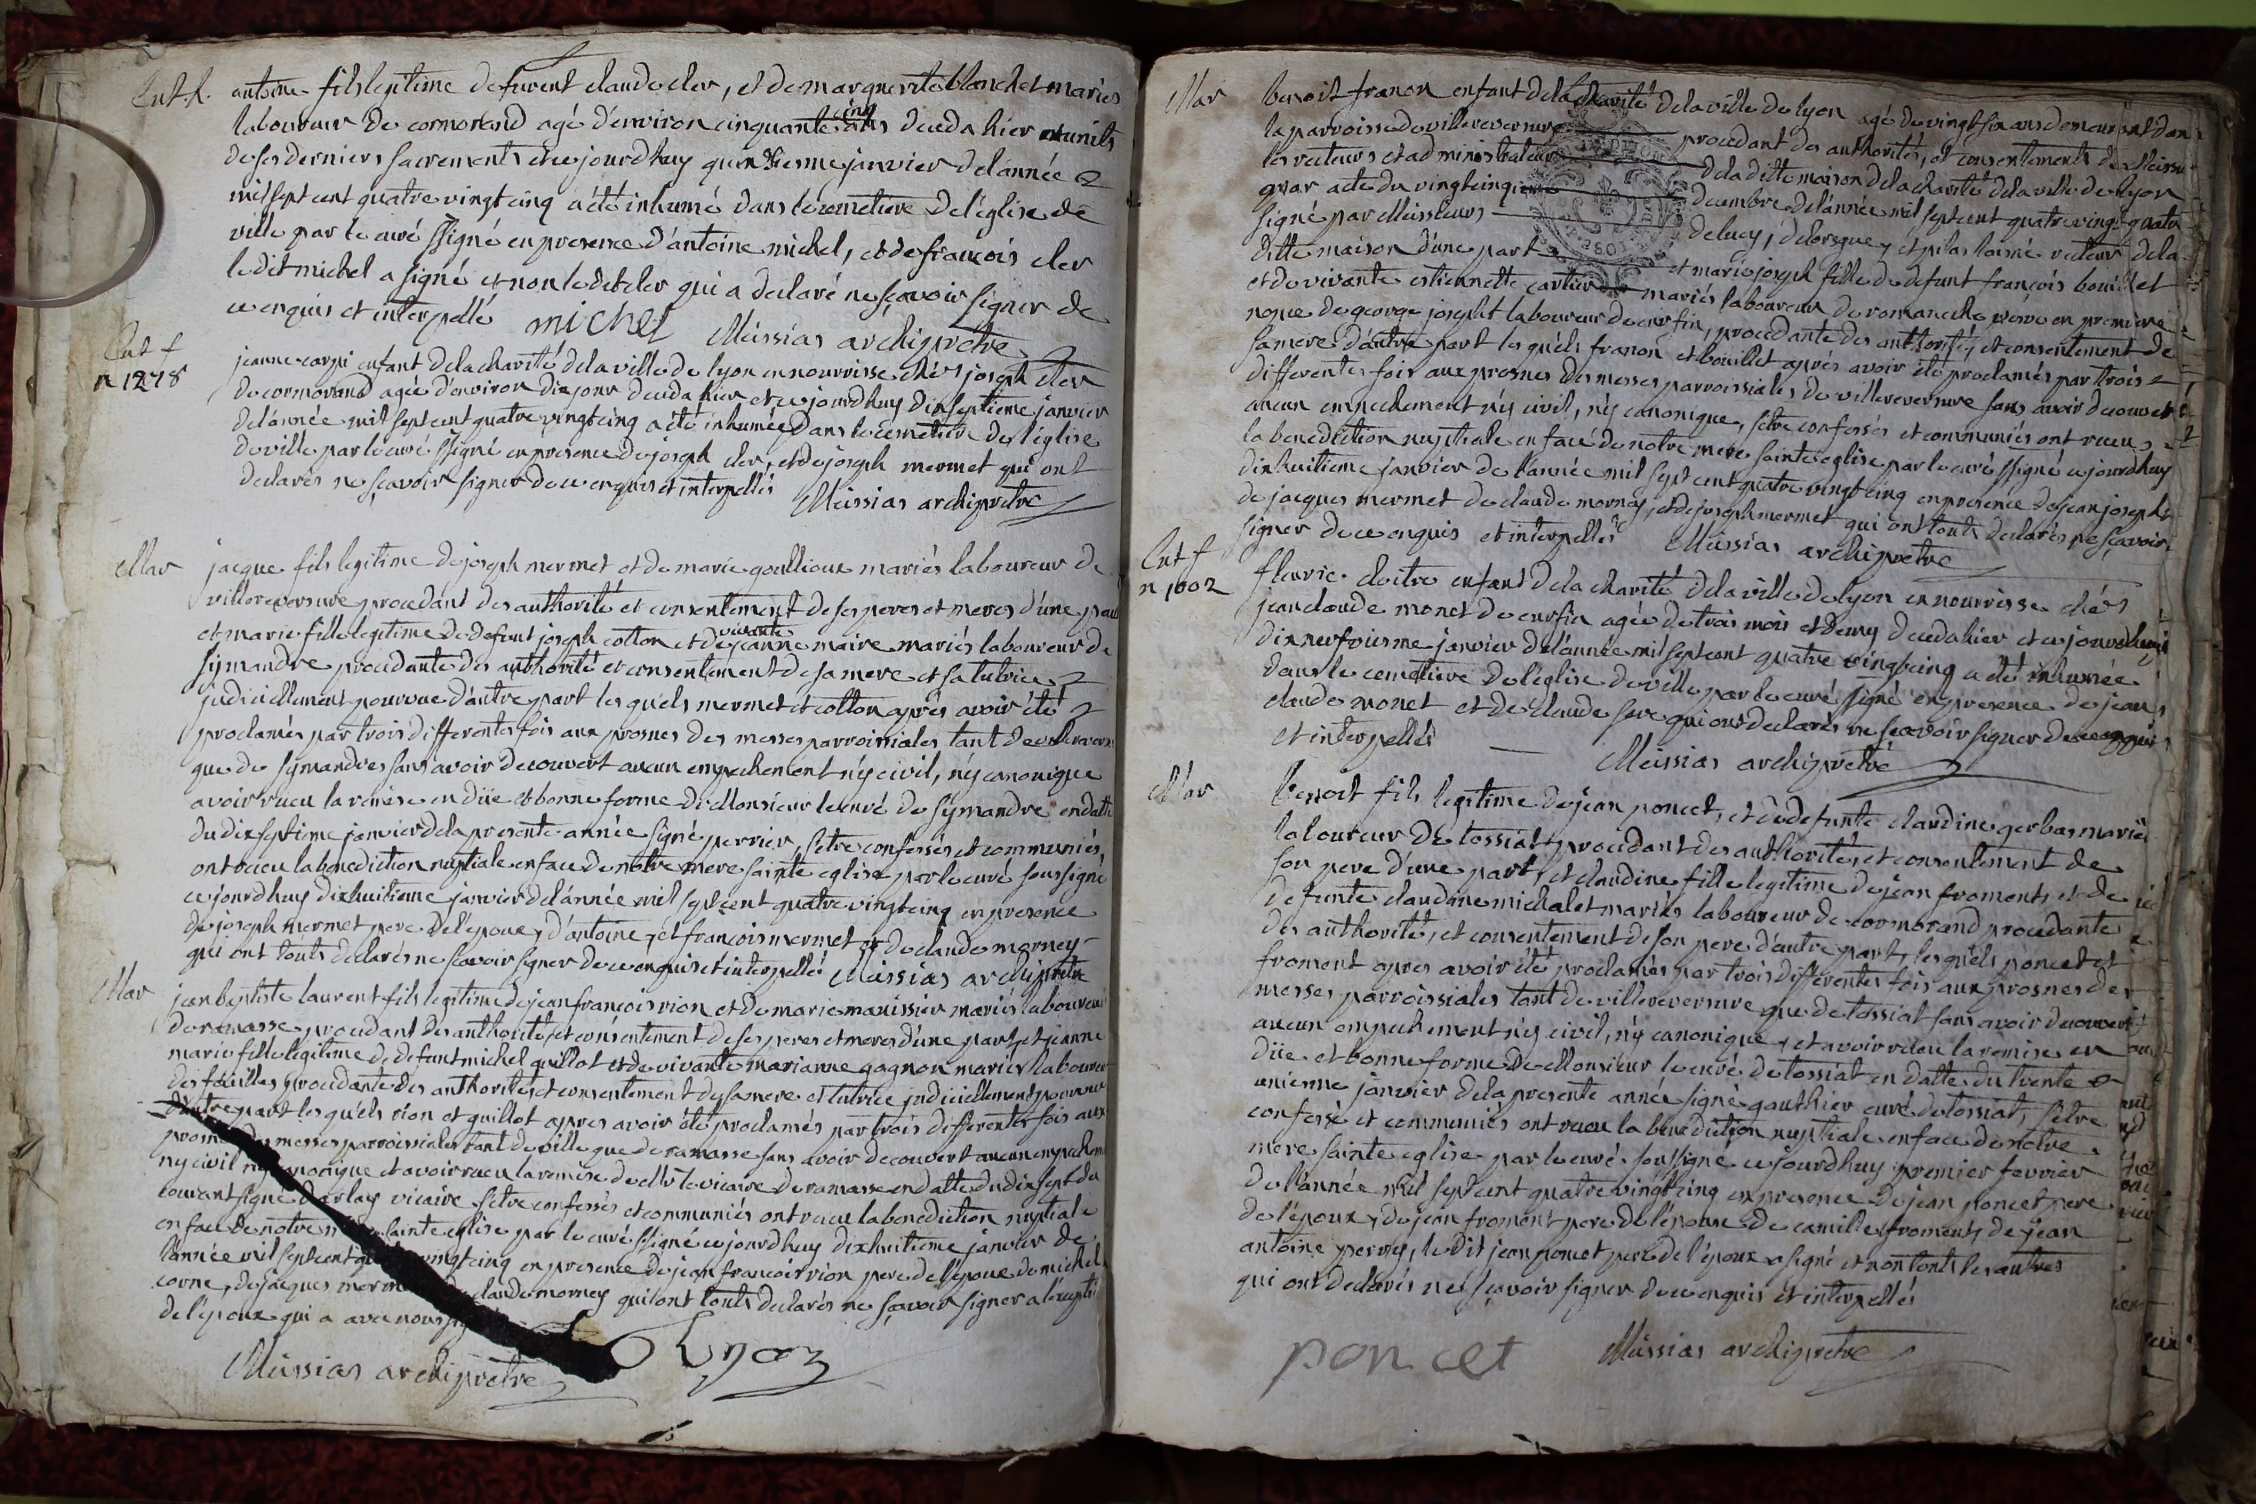 Ent. h. antoine fils legitime de furent claude cler, et de marguerite blanchet mariés
laboureur de cormorand agé d'environ cinquante cinq ans decedé hier munits
de ses derniers sacrements et ce jourdhuy quinziesme janvier de l'année
mil sept cent quatre vingt cinq a été inhumé dans le cemetiere de l'église de
ville par le curé ssigné en presence d'antoine michel, et de françois cler
le dit michel a signé et non le dit cler qui a declaré ne sçavoir signer de
ce enquis et interpellé michel Meissias archiprêtre
Ent f
n 1278
jeanne carpi enfant de la charité de la ville de lyon en nourrisse chés joseph cler
de cormorand agée d'environ dix jour decedé hier et ce jourdhuy dix septieme janvier
de l'année mil sept cent quatre vingt cinq a été inhumée dans le cemetiere de l'église
de ville par le curé ssigné en presence de joseph cler, et de joseph mermet qui ont
declarés ne sçavoir signer de ce enquis et interpellés Meissias archiprêtre
Mar jacque fils legitime de joseph mermet et de marie goullioux mariés laboureur de
villereversure procedant des authorité et consentement de ses peres et meres d'une part
et marie fille legitime de defunt joseph cotton et de vivante jeanne maire mariés laboureur de
symandre procedante des authorité et consentement de sa mere et sa tutrice
judiciellement pourvue d'autre part les quels mermet et cotton après avoir été
proclamés par trois differentes fois aux prosnes des messes parroissiales tant de villerevers
que de symandres sans avoir decouvert aucun empechement n'y civil, n'y canonique
avoir receu la remise en düe et bonne forme de Monsieur le curé de symandre en datte
du dix septieme janvier de la presente année signé perrier, s'etre confessés et communiés,
ont receu la benediction nuptiale en face de notre mere sainte eglise par le curé soussigné
ce jourdhuy dixhuitieme janvier de l'année mil sept cent quatre vingt cinq en presence
de joseph mermet pere de l'epoux, d'antoine, et françois mermet, et de claude morney
qui ont touts declarés ne sçavoir signer de ce enquis et interpellé Meissias archiprêtre
Mar jean baptiste laurent fils legitime de jean françois rion et de marie manissier mariés laboureur
de ramasse procedant des authorité, et consentement de ses peres et meres d'une part, et jeanne
marie fille legitime de defunt michel guillot et de vivante marianne gagnon mariés laboureur
des feuilles procedante des authorités et consentement de sa mere et tutrice judiciellement pourvue
d'autre part les quels rion et guillot apres avoir été proclamés par trois differentes fois aux
prosnes des messes parroissiales tant de ville que de ramasse sans avoir decouvert aucun empechem
ny civil ny canonique et avoir receu la remise de Mr le vicaire de ramasse en datte du dix sept du
courant signé darlay vicaire s'etre confessés et communiés ont receu la benediction nuptiale
en face de notre mere sainte eglise par le curé ssigné ce jourdhuy dixhuitieme janvier de
l'année mil sept cent quatre vingt cinq en presence de jean françois rion pere de l'epoux de michel
corne, de jacques mermet claude morney qui ont touts declarés ne sçavoir signer a l'exept
de l'epoux qui a avec nous
Meissias archiprêtre
Mar benoit franon enfant de la charité de la ville de lyon agé de vingt six ans demeurant dan
la parroisse de villereversure procedant des authorités, et consentements de Messie
les recteurs et administrateurs de la ditte maison de la charité de la ville de lyon
par acte du vingtcinqieme decembre de l'année mil sept cent quatre vingt quatre
signé par Messieurs delucy, delorsque, et pilas l'ainé recteur de la
ditte maison d'une part et marie joseph fille de defunt françois bouillet
et de vivante estiennette cartier mariés laboureur de romaneche prové en premiere
nopce de george josepht laboureur de curfin, procedante des authorités et consentement de
sa mere d'autre part les quels franon et bouillet aprés avoir été proclamés par trois
differentes fois aux prosnes des messes parroissiales de villereversure sans avoir decouvert
aucun empechement n'y civil, n'y canonique, s'etre confessés et communiés ont receu
la benediction nuptiale en face de notre mere sainte eglise par le curé ssigné ce jourdhuy
dixhuitieme janvier de l'année mil sept cent quatre vingt cinq en presence de jean josepht
de jacques mermet de claude morney, et de joseph mermet qui ont touts declarés ne sçavoir
signer de ce enquis et interpellés Meissias archiprêtre
Ent f
n 1002
fleurie cloitre enfant de la charité de la ville de lyon en nourrisse chés
jean claude monet de curfin agée de trois mois et demy decedé hier et ce jourdhuy
dix neufviesme janvier de l'année mil sept cent quatre vingtcinq a été inhumée
dans le cemetiere de l'église de ville par le curé ssigné en presence de jean
claude monet et de claude qui ont declarés ne sçavoir signer de ce enquis
et interpellés Meissias archiprêtre
Mar benoit fils legitime de jean poncet, et de defunte claudine gerbas mariés
laboureur de tossiat procedant des authorités, et consentement de
son pere d'une part, et claudine fille legitime de jean froment, et de
defunte claudine michalet mariés laboureur de cormorand procedante
des authorité, et consentement de son pere d'autre part, les quels poncet et
froment apres avoir été proclamés par trois differentes fois aux prosnes des
messes parroissiales tant de villereversure que de tossiat sans avoir decouvert
aucun empechement n'y civil, n'y canonique, et avoir receu la remise en
düe et bonne forme de Monsieur le curé de tossiat en datte du trente
unieme janvier de la presente année signé gauthier curé de tossiat, s'etre
confessé et communiés ont receu la benediction nuptiale en face de notre
mere sainte eglise par le curé soussigné ce jourdhuy premier fevrier
de l'année mil sept cent quatre vingt cinq en presence de jean poncet pere
de l'époux, de jean froment pere de l'épouse de camille froment, de jean
antoine perrey, le dit jean poncet pere de l'époux a signé et non touts les autres
qui ont declarés ne sçavoir signer de ce enquis et interpellés
poncet Meissias archiprêtre